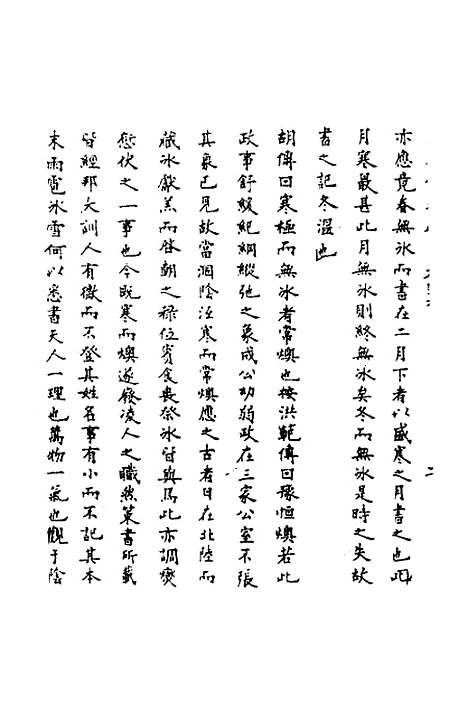 亦應竟春無冰而書在二月下者以盛寒之月書之也此
月寒最甚此月無冰則終無冰矣冬而無冰是時之失故
書之記冬溫也
胡傳曰寒極而無冰者常燠也按洪範傳曰豫恒燠若此
政事舒緩紀綱縱弛之象成公幼弱政在三家公室不張
其象已見故當涸陰沍寒而常燠應之古者日在北陸而
藏冰獻羔而啓朝之祿位賓食喪祭冰皆與焉此亦調燮
愆伏之一事也今既寒而燠遂廢凌人之職然策書所載
皆經邦大訓人有微而不登其姓名事有小而不記其本
末雨雹冰雪何以悉書天人一理也萬物一氣也觀于陰
二